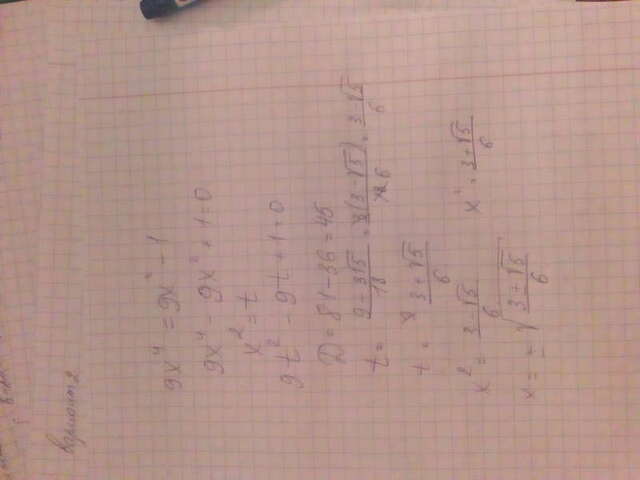 Вариант 2
9x⁴ = 9x² - 1
9x⁴ - 9x² + 1 = 0
x² = t
9t² - 9t + 1 = 0
D = 81 - 36 = 45
t = (9 - 3√5)/18 = 3(3 - √5)/18 6 = (3 - √5)/6
t = (3 + √5)/6
x² = (3 - √5)/6 x² = (3 + √5)/6
x = ± √((3 + √5)/6)